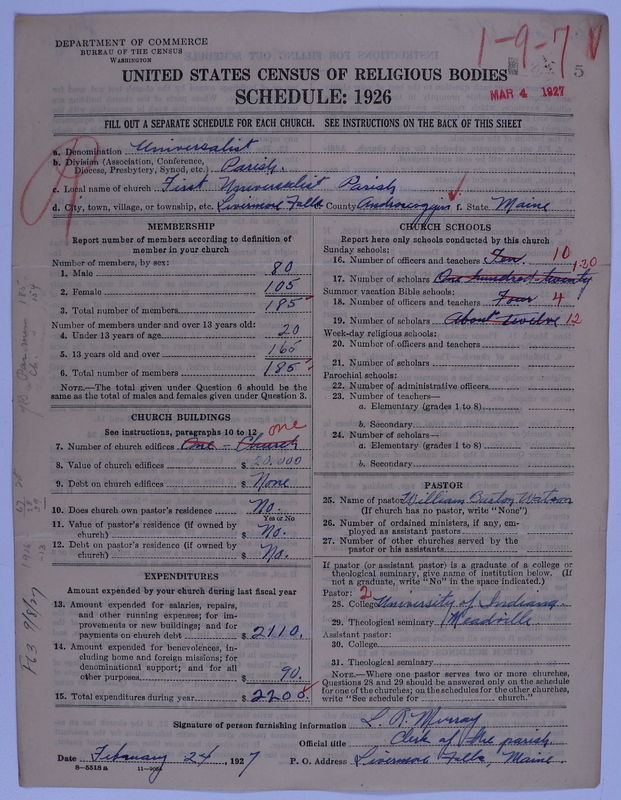 DEPARTMENT OF COMMERCE
BUREAU OF THE CENSUS
WASHINGTON
1-9-7
5
UNITED STATES CENSUS OF RELIGIOUS BODIES
SCHEDULE: 1926
MAR 4 1927
FILL OUT A SEPARATE SCHEDULE FOR EACH CHURCH. SEE INSTRUCTIONS ON THE BACK OF THIS SHEET
a. Denomination Universalist
b. Division (Association, Conference, Diocese, Presbytery, Synod, etc.) Parish.
c. Local name of church First Universalist Parish
d. City, town, village, or township, etc. Livermore Falls County Androscoggin f. State Maine
MEMBERSHIP
Report number of members according to definition of
member in your church
Number of members, by sex:
1. Male 80
2. Female 105
3. Total number of members 185
Number of members under and over 13 years old:
4. Under 13 years of age 20
5. 13 years old and over 165
6. Total number of members 185
NOTE.—The total given under Question 6 should be
same as the total of males and females given under Question 3.
CHURCH BUILDINGS
See instructions, paragraphs 10 to 12 one
7. Number of church edifices One - Church
8. Value of church edifices $ 20,000
9. Debt on church edifices $ None
10. Does church own pastor's residence No.
Yes or No
11. Value of pastor's residence (if owned by
church) $ No.
12. Debt on pastor's residence (if owned by
church) $ No.
EXPENDITURES
Amount expended by your church during last fiscal year
13. Amount expended for salaries, repairs,
and other running expenses; for im-
provements or new buildings; and for
payments on church debt $ 2110.
14. Amount expended for benevolences, in-
cluding home and foreign missions; for
denominational support; and for all
other purposes $ 90.
15. Total expenditures during year $ 2200.
CHURCH SCHOOLS
Report here only schools conducted by this church
Sunday schools:
16. Number of officers and teachers Ten. 10
17. Number of scholars One hundred twenty 120
Summer vacation Bible schools:
18. Number of officers and teachers Four 4
19. Number of scholars About twelve 12
Week-day religious schools:
20. Number of officers and teachers
21. Number of scholars
Parochial schools:
22. Number of administrative officers
23. Number of teachers—
a. Elementary (grades 1 to 8)
b. Secondary
24. Number of scholars—
a. Elementary (grades 1 to 8)
b. Secondary
PASTOR
25. Name of pastor William Watson
(If church has no pastor, write "None")
26. Number of ordained ministers, if any, em-
ployed as assistant pastors
27. Number of other churches served by the
pastor or his assistants
If pastor (or assistant pastor) is a graduate of a college or
theological seminary, give name of institution below. (If
not a graduate, write "No" in the space indicated.)
Pastor: 2
28. College University of Indiana
29. Theological seminary Meadville
Assistant pastor:
30. College
31. Theological seminary
NOTE.—Where one pastor serves two or more churches,
Questions 28 and 29 should be answered only on the schedule
for one of the churches; on the schedules for the other churches,
write "See schedule for church."
Signature of person furnishing information L. R. Murray
Official title Clerk of the parish.
Date February 24, 1927
P. O. Address Livermore Falls, Maine.
8-5518 a